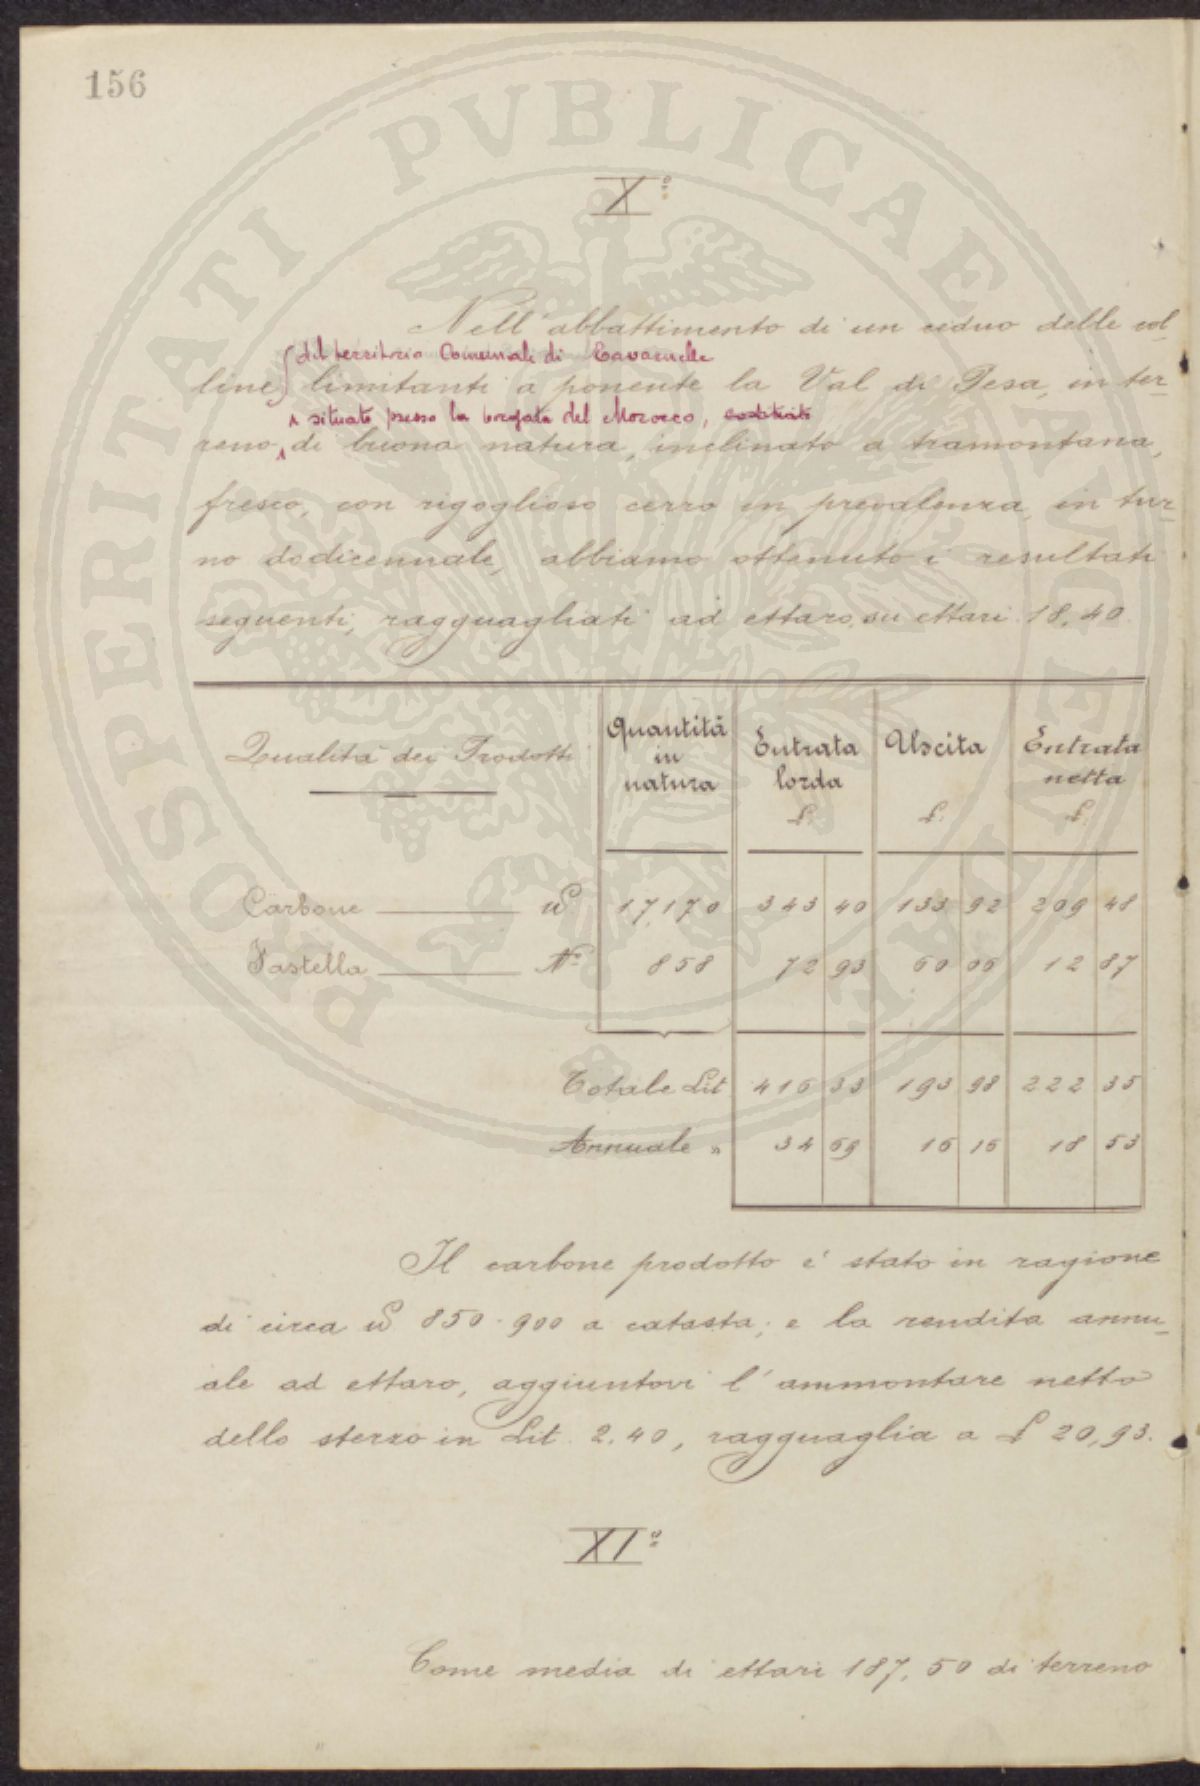 156
PROSPERITATI PVBLICAE AVGENDAE
Xº
Nell'abbattimento di un ceduo delle col-
del territorio Comunale di Tavarnelle
line, limitanti a ponente la Val di Pesa, in ter-
situato presso la borgata del Morocco,
reno, di buona natura, inclinato a tramontana,
fresco, con rigoglioso cerro in prevalenza, in tur-
no dodicennale, abbiamo ottenuto i resultati
seguenti, ragguagliati ad ettaro, su ettari 18,40.
Qualità dei Prodotti Quantità in natura Entrata lorda £. Uscita £. Entrata netta £.
Carbone 17,170 343 40 133 92 209 48
Fastella Nº 858 72 93 60 06 12 87
Totale Lit 416 33 193 98 222 35
Annuale " 34 69 16 16 18 53
Il carbone prodotto è stato in ragione
di circa 850-900 a catasta; e la rendita annu-
ale ad ettaro, aggiuntovi l'ammontare netto
dello sterzo in Lit. 2.40, ragguaglia a £ 20,93.
XIº
Come media di ettari 187,50 di terreno